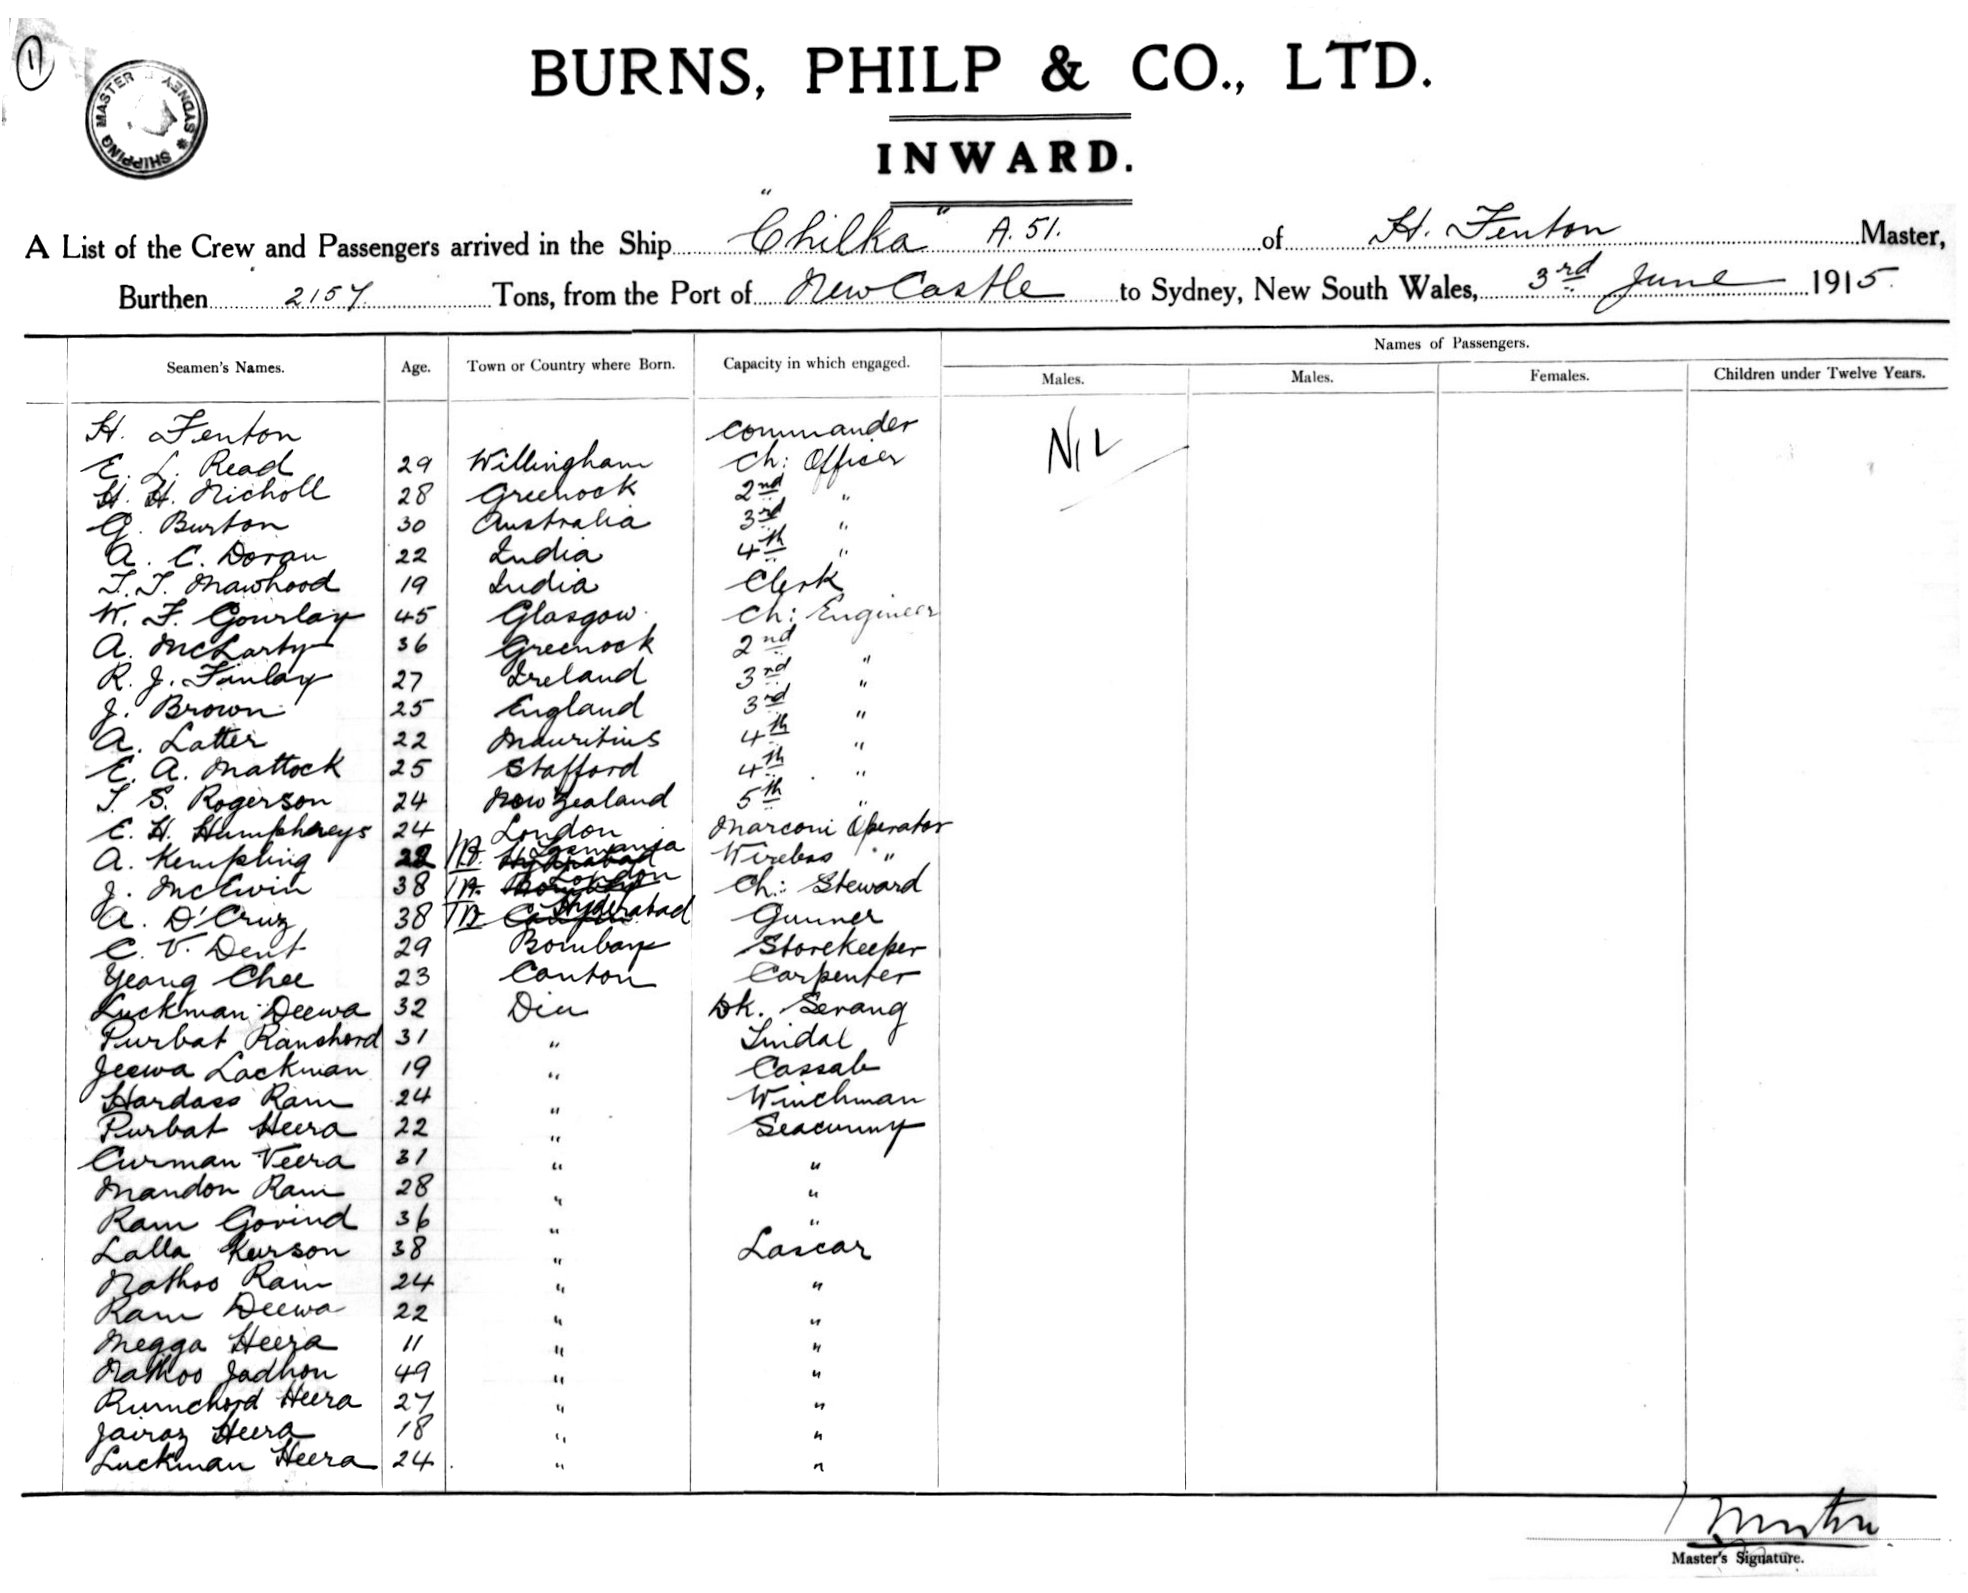 1
SHIPPING MASTER SYDNEY
BURNS, PHILP & CO., LTD.
INWARD.
A List of the Crew and Passengers arrived in the Ship "Chilka" A.51. of H. Fenton Master,
Burthen 2157 Tons, from the Port of NewCastle to Sydney, New South Wales, 3rd June 1915
Names of Passengers.
Seamen's Names. Age. Town or Country where Born. Capacity in which engaged. Males. Males. Females. Children under Twelve Years.
H. Fenton Commander NIL
E. L. Read 29 Willingham Ch: Officer
H. H. Nicholl 28 Greenock 2nd "
G. Burton 30 Australia 3rd "
A. C. Doran 22 India 4th "
T. T. Mawhood 19 India Clerk
W. F. Gourlay 45 Glasgow Ch: Engineer
A. McLarty 36 Greenock 2nd "
R. J. Finlay 27 Ireland 3rd "
J. Brown 25 England 3rd "
A. Latter 22 Mauritius 4th "
E. A. Mattock 25 Stafford 4th "
T. S. Rogerson 24 New Zealand 5th "
E. H. Humphreys 24 London Marconi Operator
A. Kempling 22 Tasmania Wireless "
J. McEwin 38 London Ch: Steward
A. D'Cruz 38 Hyderabad Gunner
C. V. Dent 29 Bombay Storekeeper
Yeong Chee 23 Canton Carpenter
Luckman Deewa 32 Diu Dk. Serang
Purbat Ranchord 31 " Tindal
Jeewa Lackman 19 " Cassab
Hardass Ram 24 " Winchman
Purbat Heera 22 " Seacunny
Curman Veera 31 " "
Mandon Ram 28 " "
Ram Govind 36 " "
Lalla Kurson 38 " Lascar
Nathoo Ram 24 " "
Ram Deewa 22 " "
Megga Heera 11 " "
Nathoo Jadhon 49 " "
Rumchord Heera 27 " "
Jairaz Heera 18 " "
Luckman Heera 24 " "
Master's Signature.